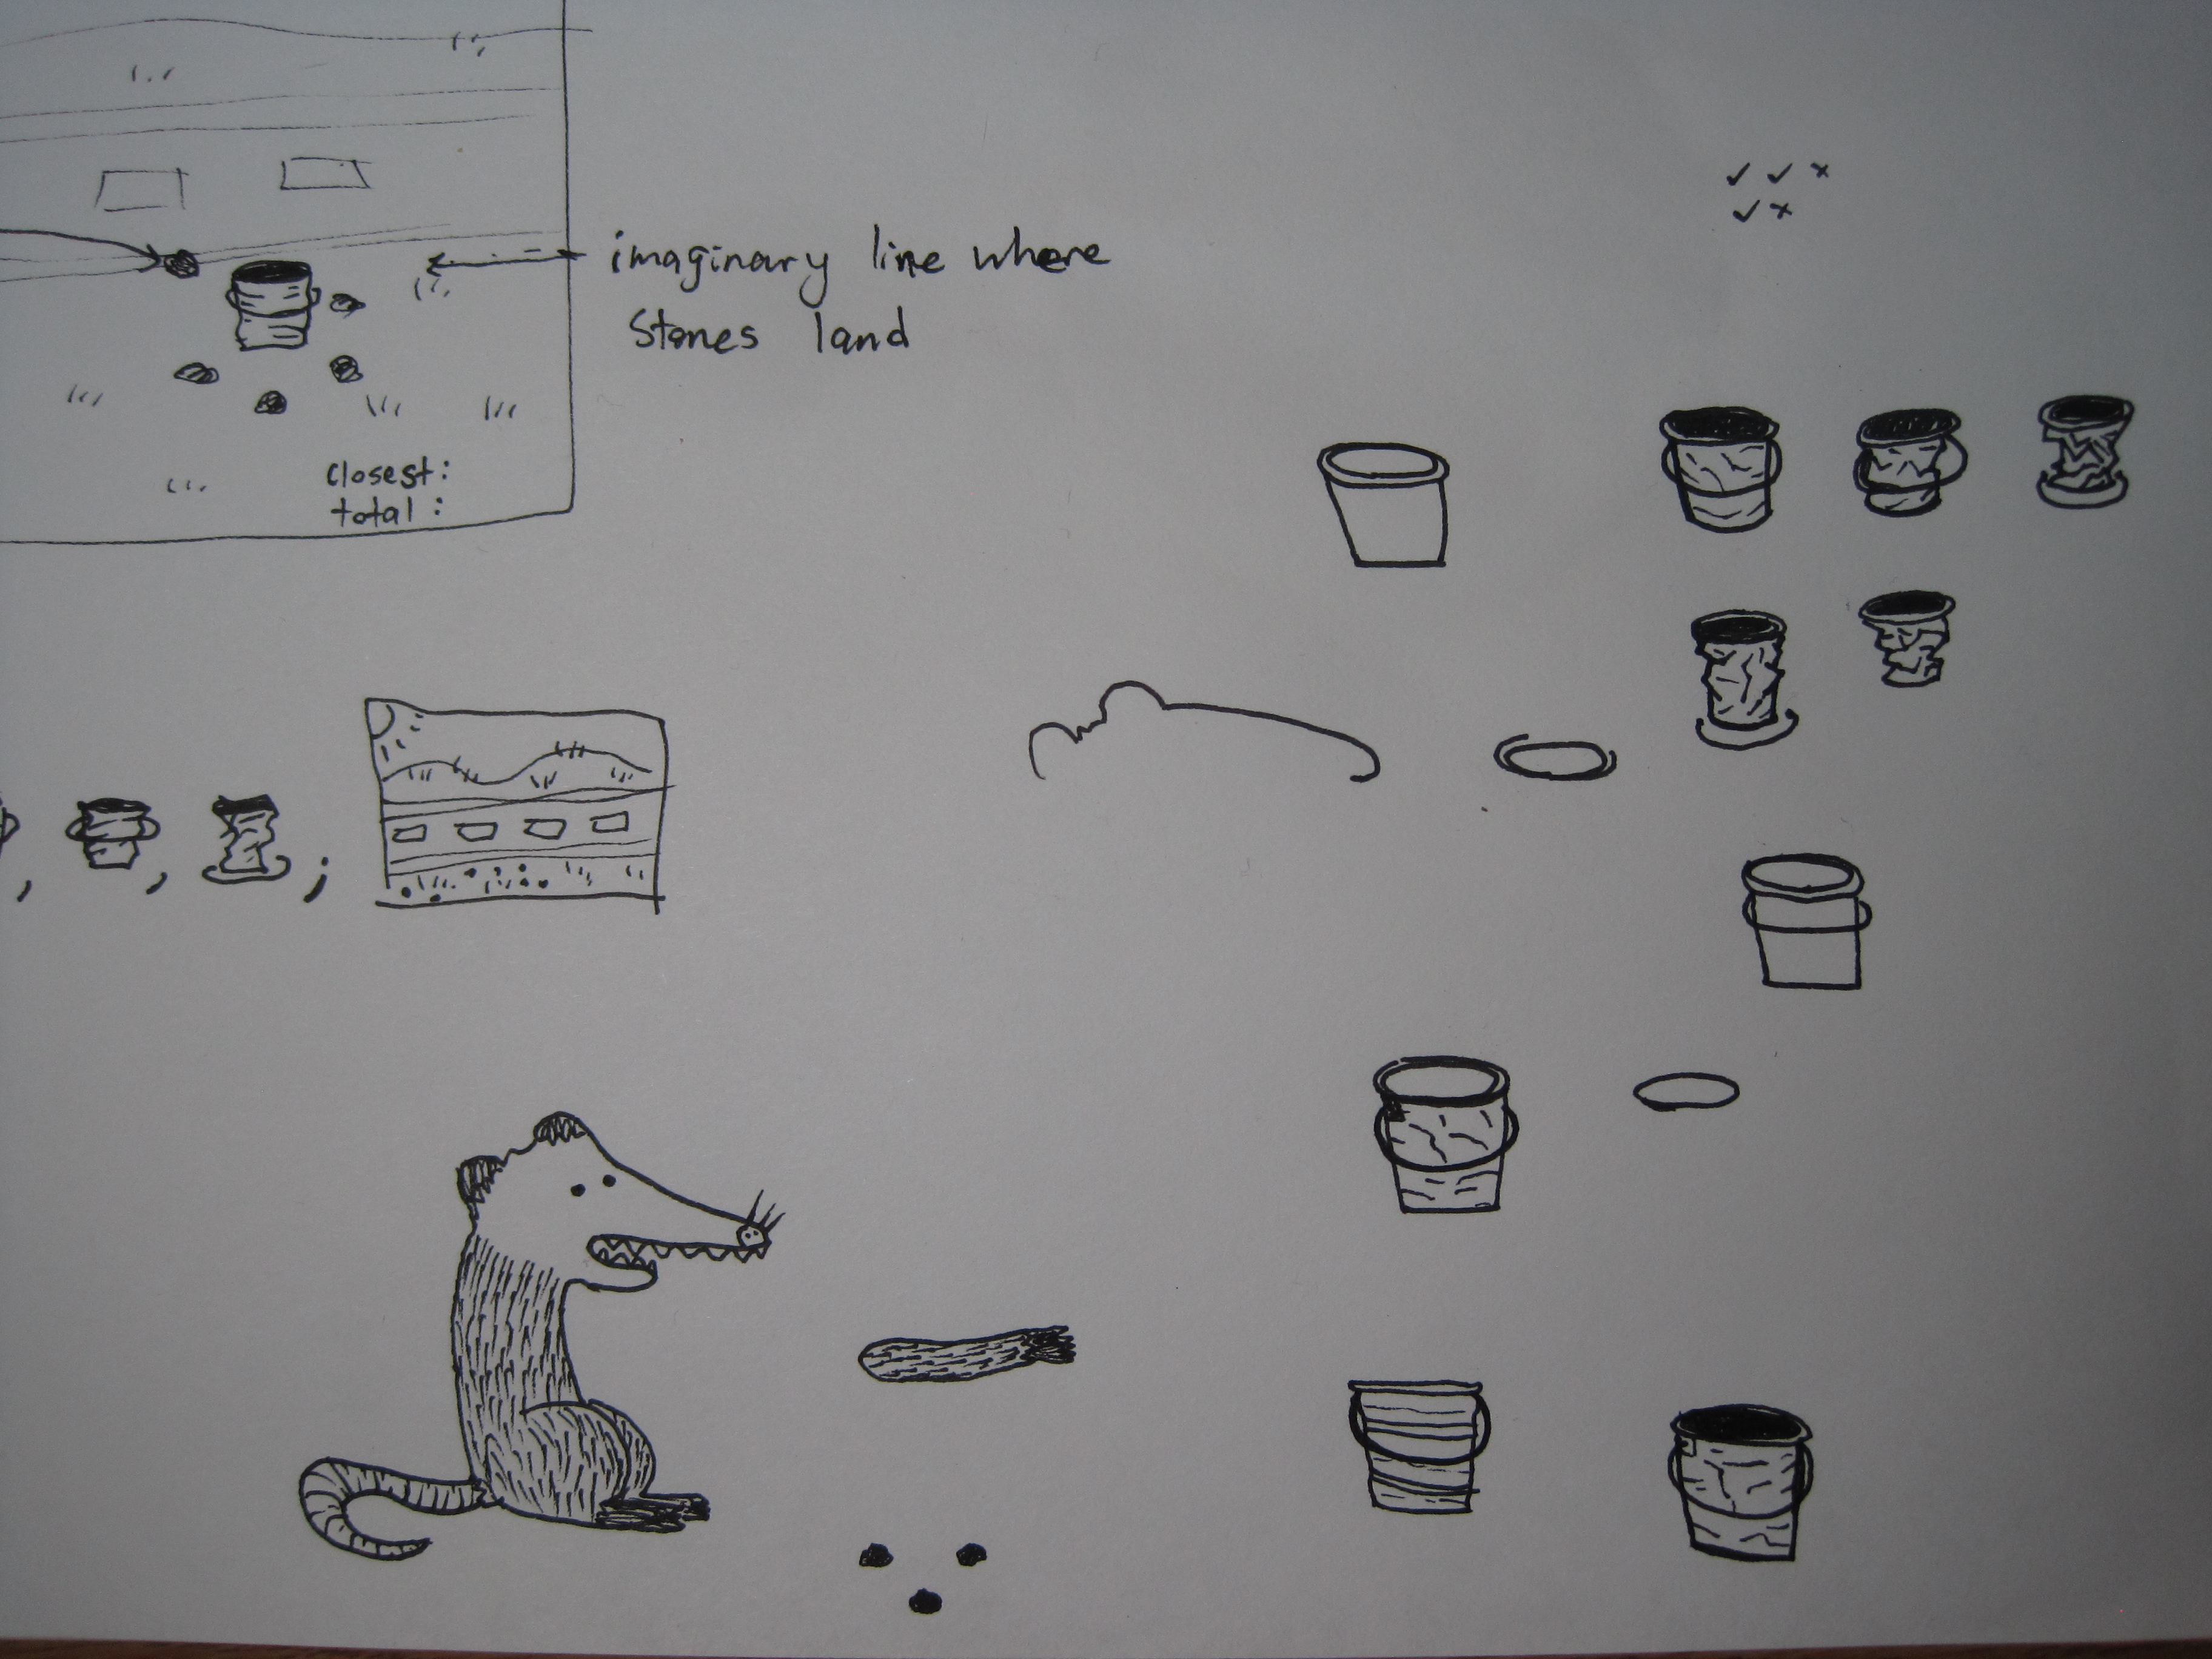 imaginary line where
Stones land
closest:
total: